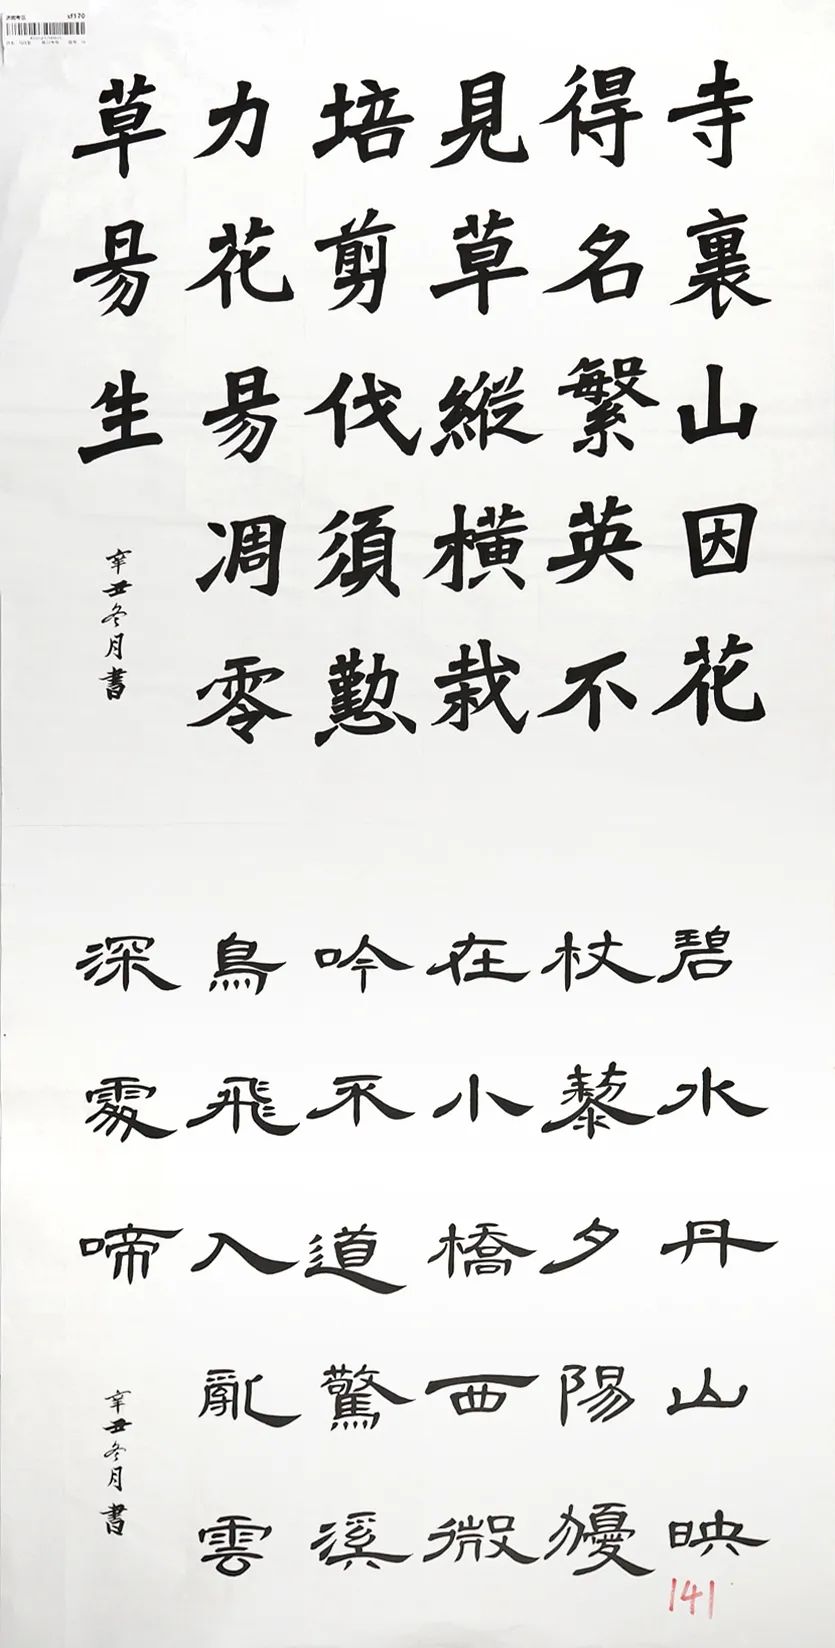 寺裏山因花
得名繁英不
見草縱橫栽
培剪伐須懃
力花易凋零
草易生
辛丑冬月書
碧水丹山映
杖藜夕陽獶
在小橋西微
吟不道驚溪
鳥飛入亂雲
深處啼
辛丑冬月書
141